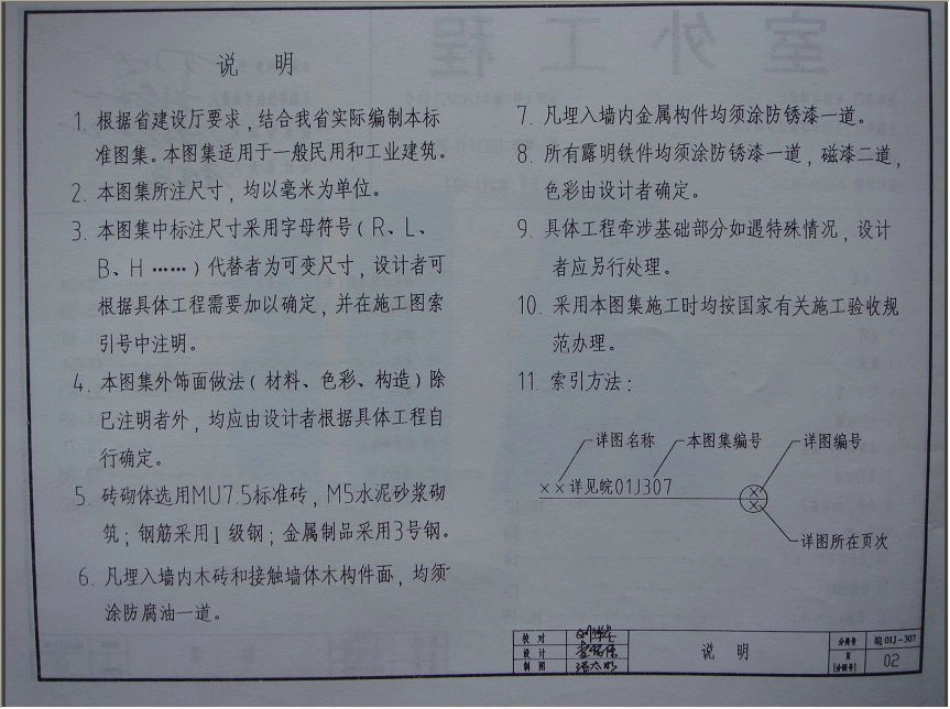 说 明
1. 根据省建设厅要求，结合我省实际编制本标
准图集。本图集适用于一般民用和工业建筑。
2. 本图集所注尺寸，均以毫米为单位。
3. 本图集中标注尺寸采用字母符号（R、L、
B、H ……）代替者为可变尺寸，设计者可
根据具体工程需要加以确定，并在施工图索
引号中注明。
4. 本图集外饰面做法（材料、色彩、构造）除
已注明者外，均应由设计者根据具体工程自
行确定。
5. 砖砌体选用MU7.5标准砖，M5水泥砂浆砌
筑；钢筋采用I级钢；金属制品采用3号钢。
6. 凡埋入墙内木砖和接触墙体木构件面，均须
涂防腐油一道。
7. 凡埋入墙内金属构件均须涂防锈漆一道。
8. 所有露明铁件均须涂防锈漆一道，磁漆二道，
色彩由设计者确定。
9. 具体工程牵涉基础部分如遇特殊情况，设计
者应另行处理。
10. 采用本图集施工时均按国家有关施工验收规
范办理。
11. 索引方法：
详图名称 本图集编号 详图编号
××详见皖01J307
×
×
详图所在页次
校 对
设 计
制 图
说 明
分册号 皖 01J-307
页 02
室外工程